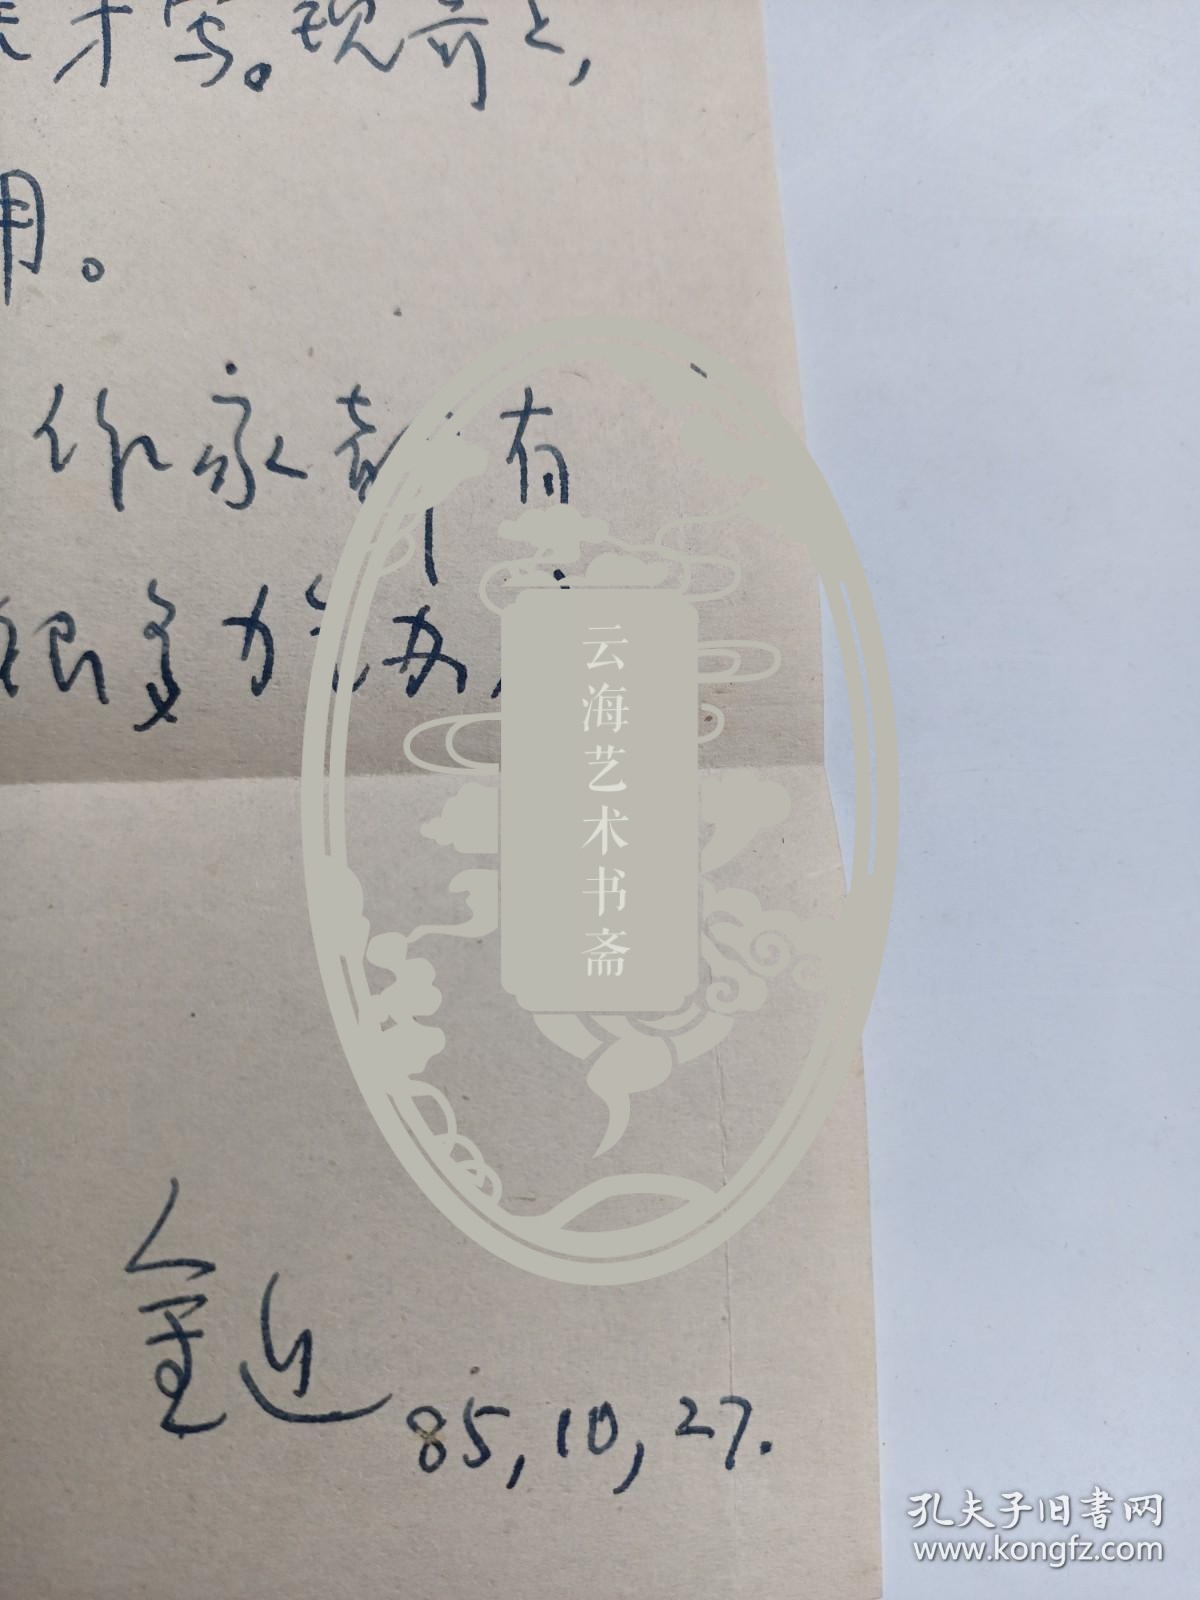 才写。现寄上,
用。
作家都有
很多
金近
85,10,27.
云海艺术书斋
孔夫子旧书网
www.kongfz.com